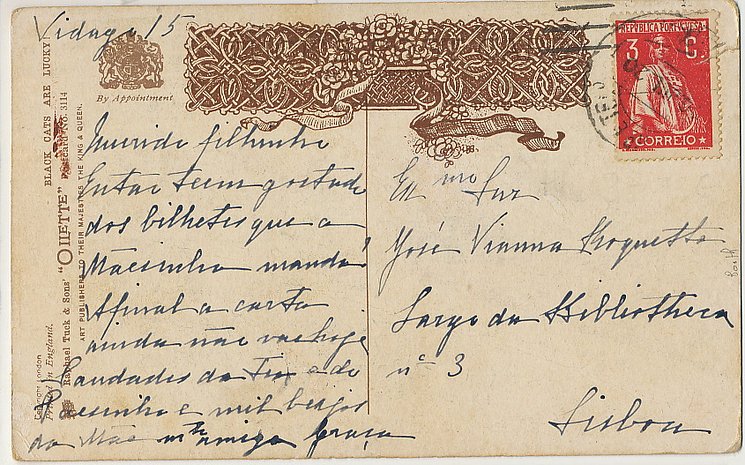 Vidago 15
Querido filhinho
Então teem gostado
dos bilhetes que a
Mãesinha manda?
Afinal a carta
ainda não vae hoje
Saudades da Tia e do
Paesinho e mil beijos
da Mãe mto amiga Graça
Exmo Snr
José Vianna Roquette
Largo da Bibliotheca
nº 3
Lisboa
By Appointment
BLACK CATS ARE LUCKY.
Raphael Tuck & Sons' "OILETTE" Postcard No. 3114
ART PUBLISHERS TO THEIR MAJESTIES THE KING & QUEEN.
Copyright London
Printed in England.
REPUBLICA PORTUGUESA
3 C.
CORREIO